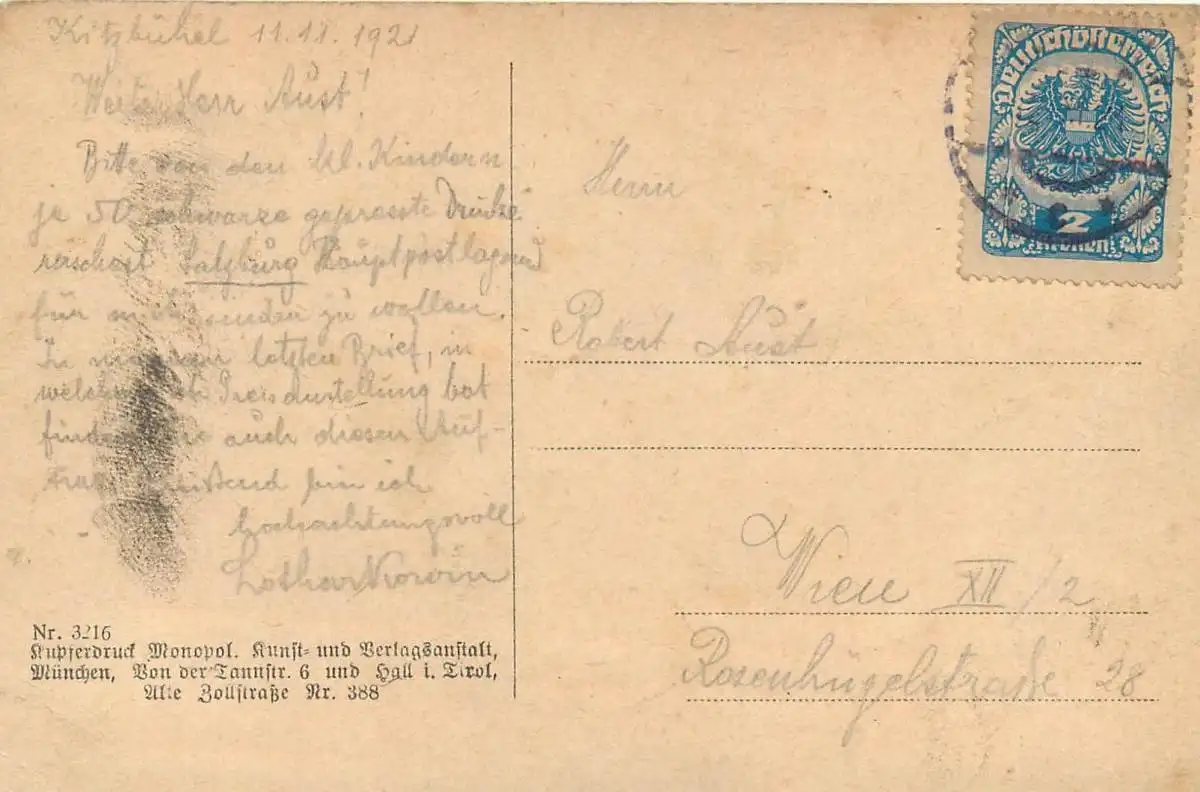 Kitzbühel 11.11.1921
Werter Herr Aust!
Bitte von den kl. Kindern
je 50 schwarze gepresste Drucke
raschest Salzburg Hauptpostlagernd
für mich senden zu wollen.
In meinem letzten Brief, in
welchem ich Preisdarstellung bat
finden Sie auch diesen Auf-
trag. bin ich
hochachtungsvoll
Lothar
Nr. 3216
Kupferdruck Monopol. Kunst- und Verlagsanstalt,
München, Von der Tannstr. 6 und Hall i. Tirol,
Alte Zollstraße Nr. 388
Deutschösterreich
2
Kronen
Herrn
Robert Aust
Wien XII/2
Rosenhügelstraße 28